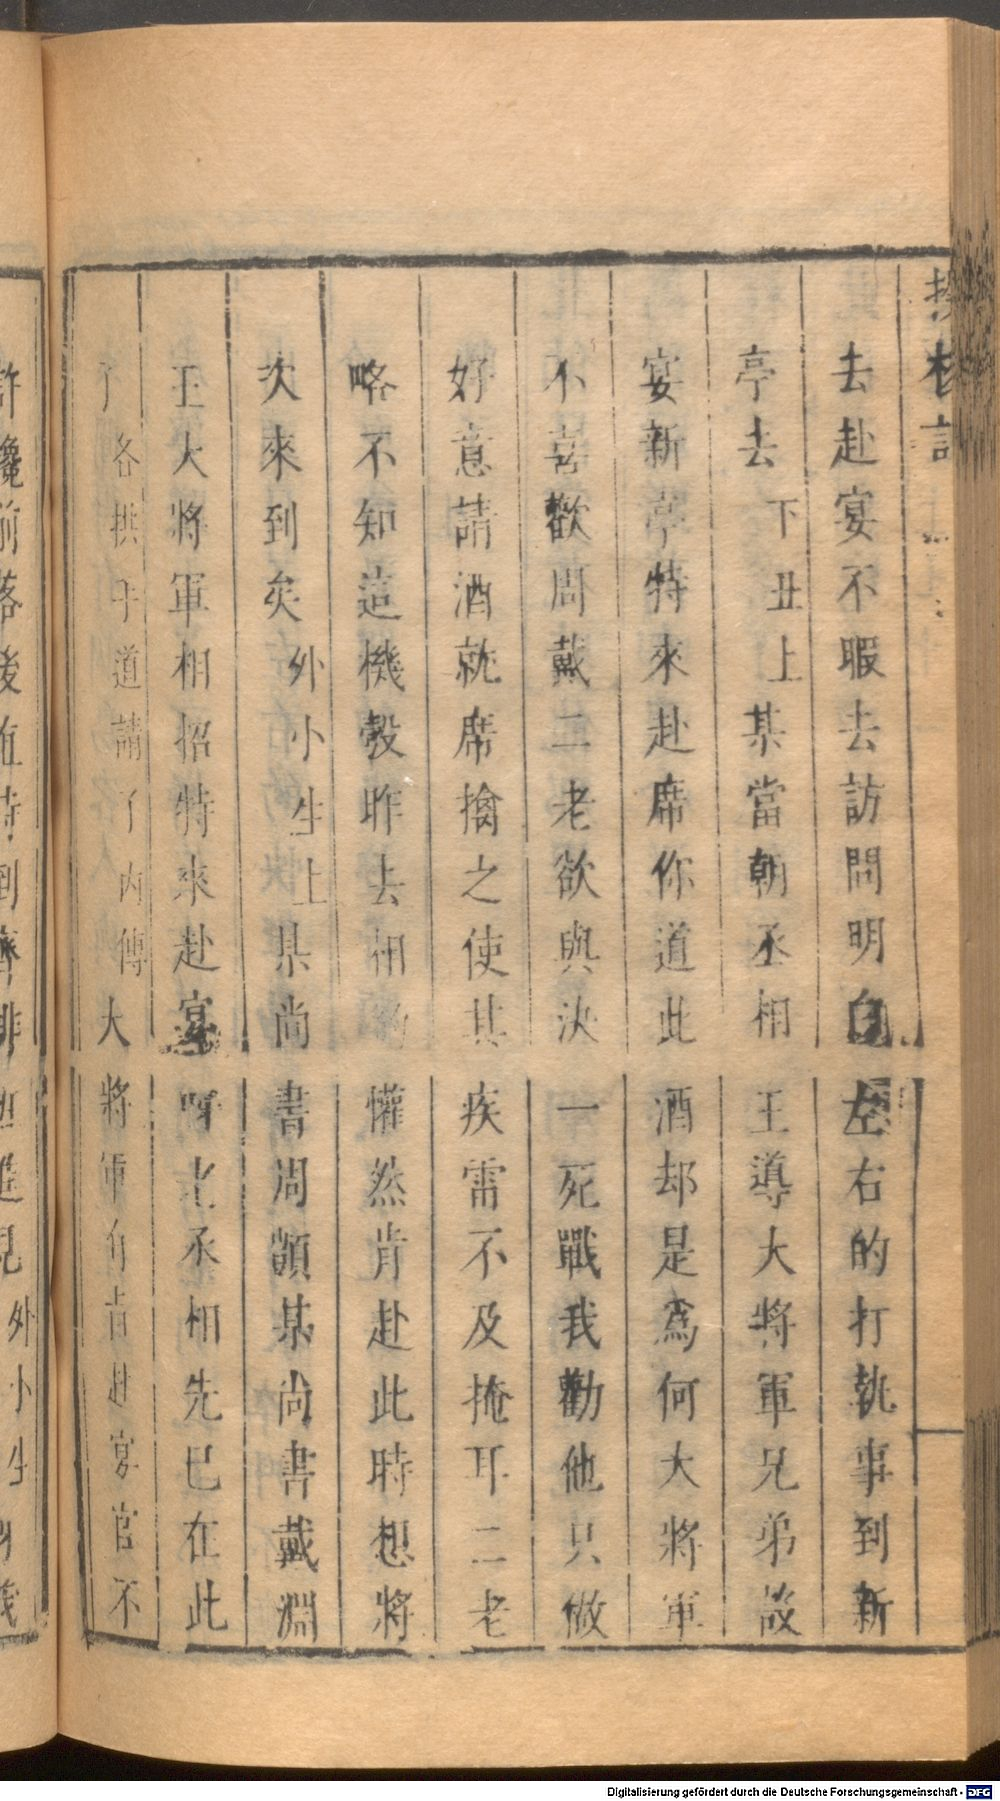 去赴宴不暇去訪問明白左右的打執事到新
亭去下丑上某當朝丞相王導大將軍兄弟設
宴新亭特來赴席你道此酒却是爲何大將軍
不喜歡周戴二老欲與決一死戰我勸他只做
好意請酒就席擒之使其疾雷不及掩耳二老
略不知這機彀昨去相約懽然肯赴此時想將
次來到矣外小生上某尚書周顗某尚書戴淵
王大將軍相招特來赴宴呀老丞相先已在此
了各拱手道請了內傳大將軍有旨赴宴官不
許攙前落後 到齊排班進見外小生
Digitalisierung gefördert durch die Deutsche Forschungsgemeinschaft - DFG